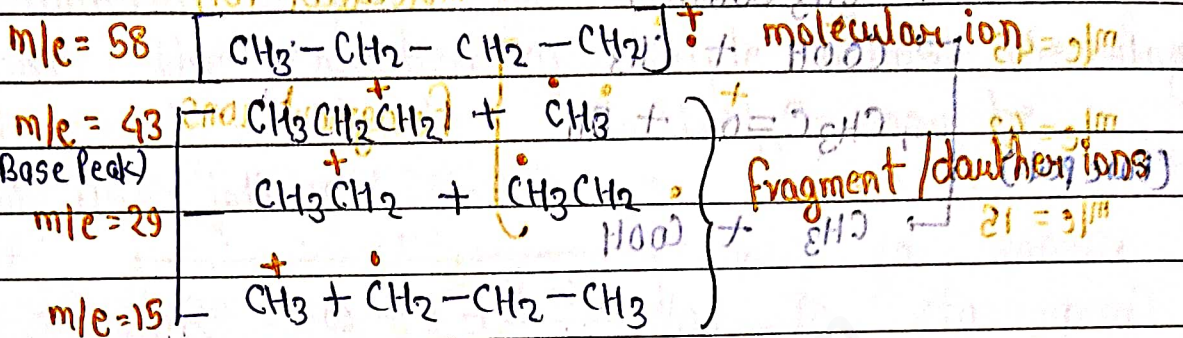 m/e = 58 [CH3 – CH2 – CH2 – CH2]+• molecular ion
m/e = 43 – CH3CH2C+H2 + C•H3
Base Peak)
m/e = 29 – CH3C+H2 + C•H3CH2 fragment / dauther ions
m/e = 15 – C+H3 + C•H2 – CH2 – CH3